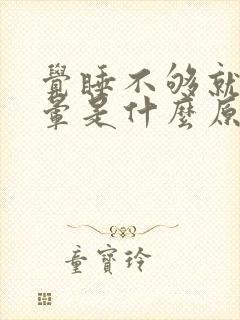 覺睡不够就
暈是什麼原
童寶玲